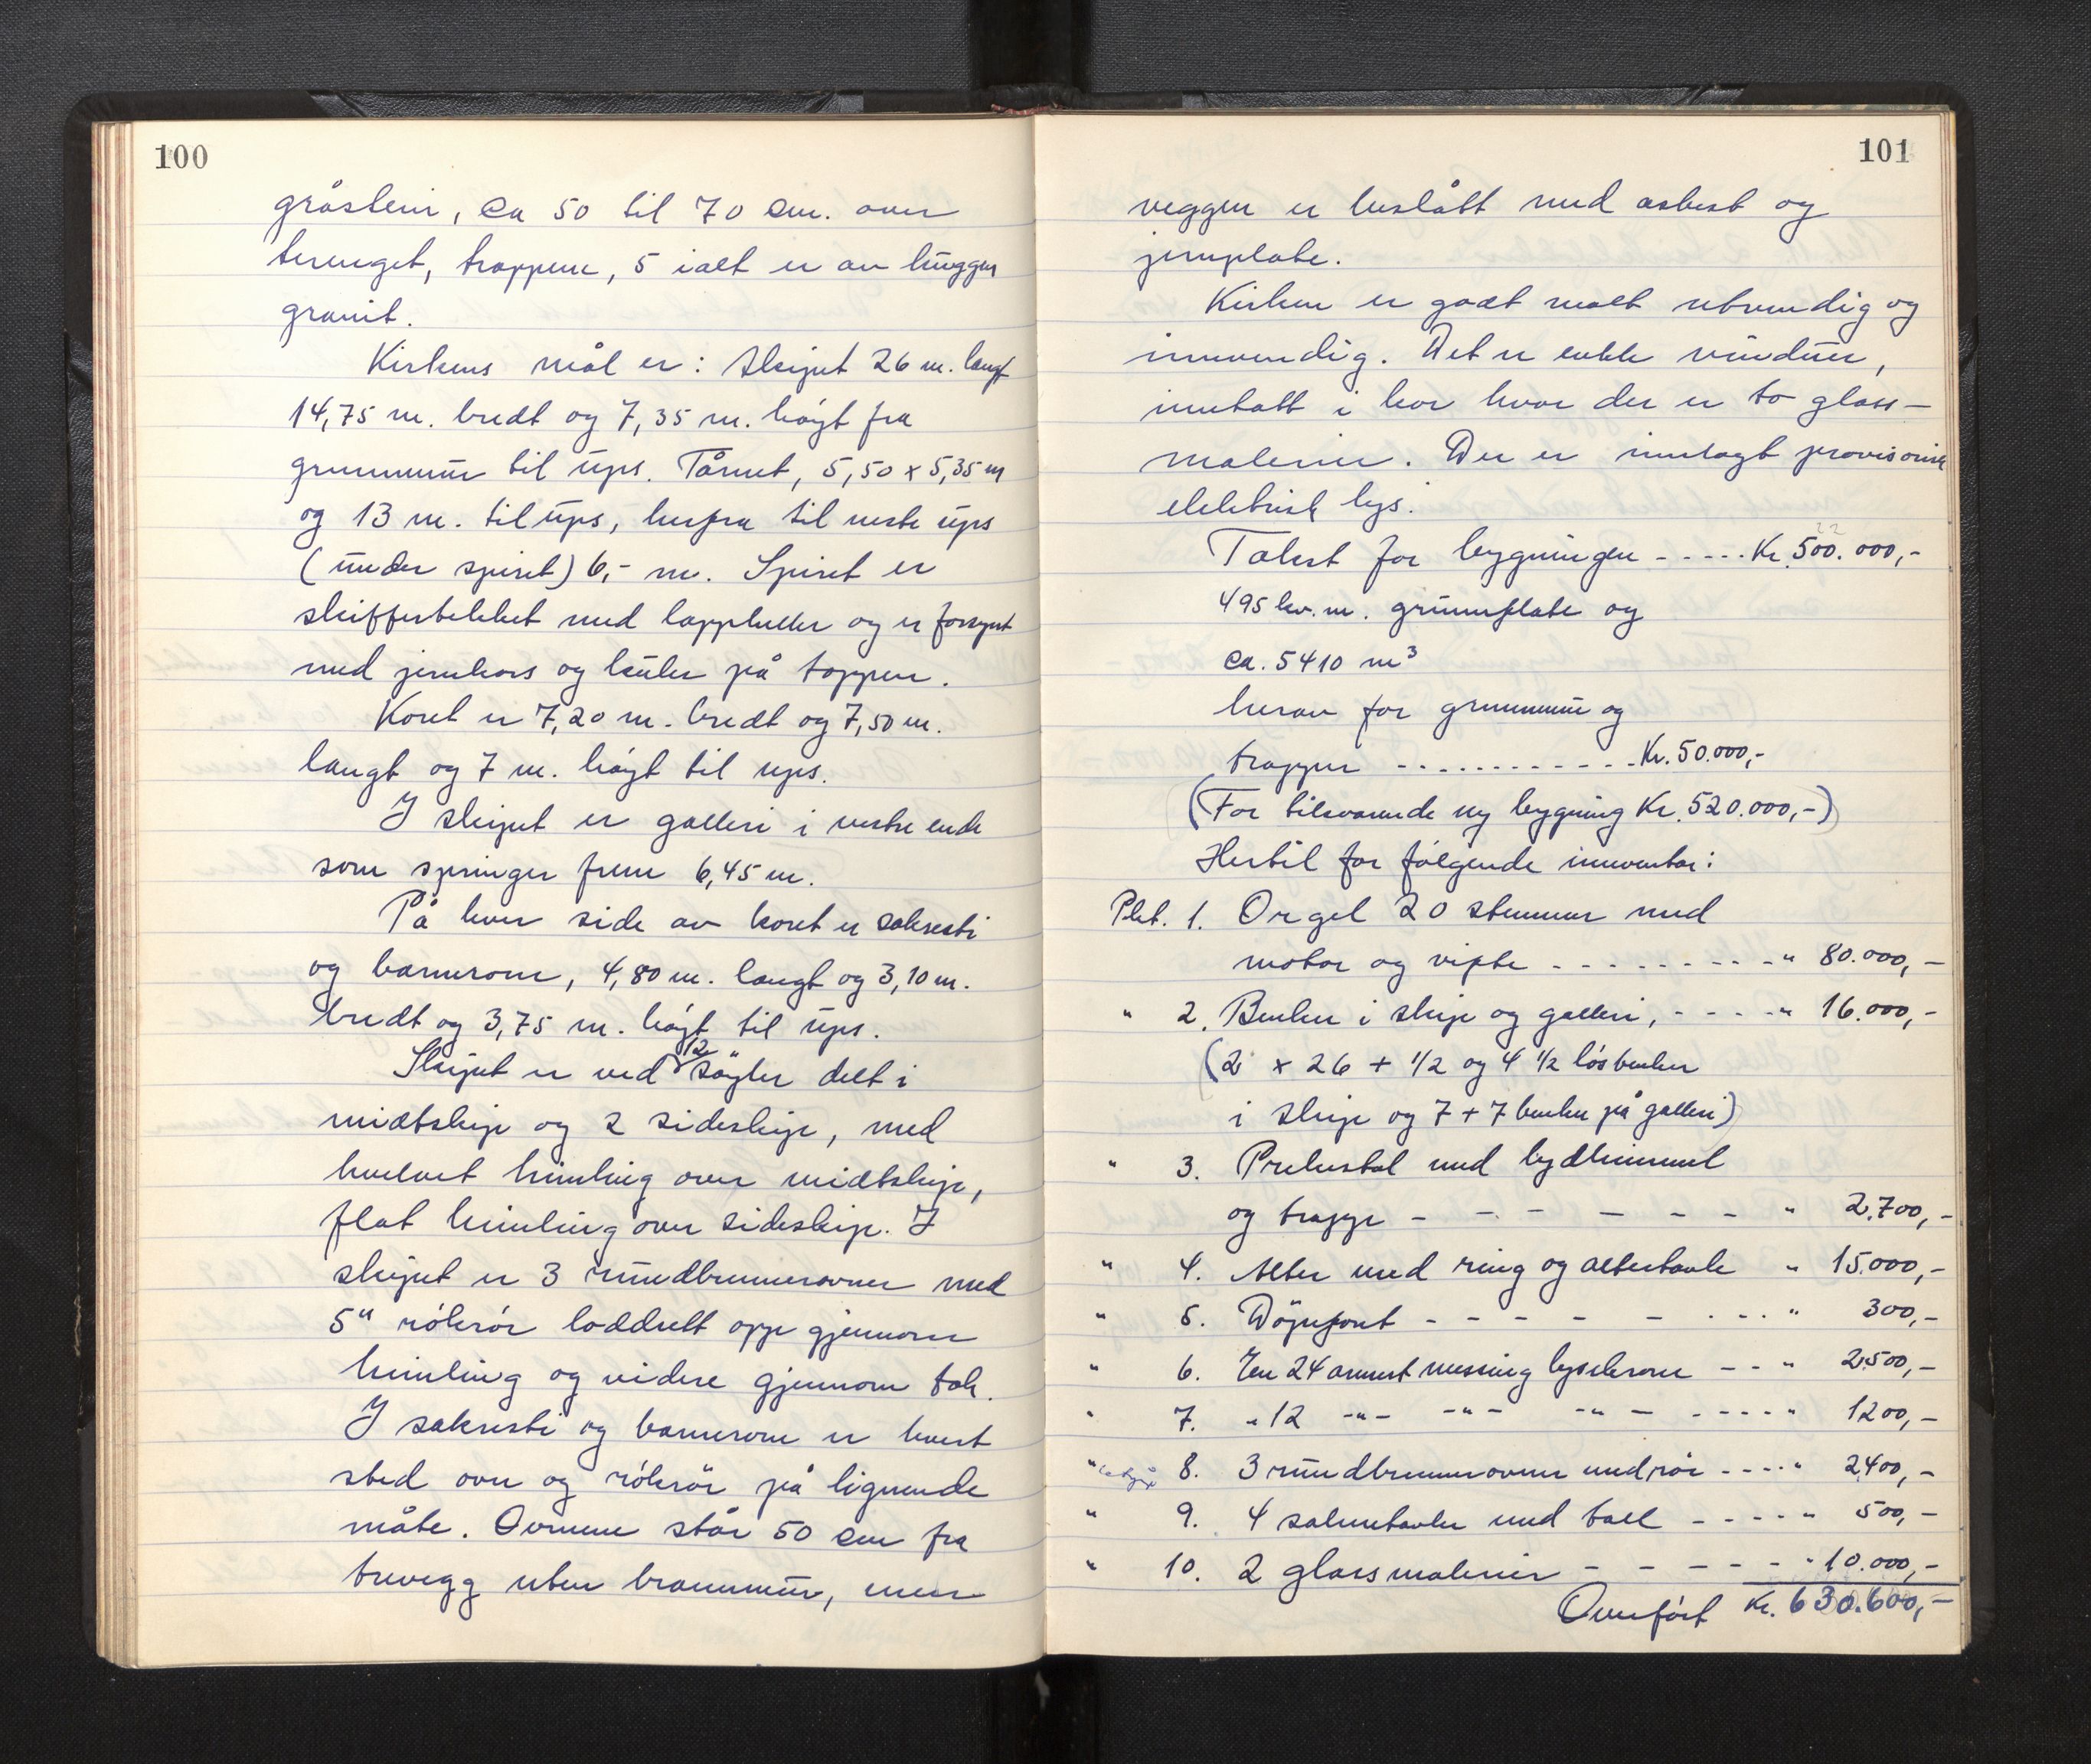 100
gråstein, ca 50 til 70 cm. over
terenget, trappene, 5 ialt er av huggen
granit.
Kirkens mål er: Skipet 26 m. langt
14,75 m. bredt og 7,35 m. høyt fra
grunnmur til ups. Tårnet, 5,50 x 5,35 m
og 13 m. til ups, herfra til neste ups
(under spiret) 6,- m. Spiret er
skiffertekket med lapphuller og er forsynt
med jernkors og kuler på toppen.
Koret er 7,20 m. bredt og 7,50 m.
langt og 7 m. høyt til ups.
I skipet er galleri i vestre ende
som springer frem 6,45 m.
På hver side av koret er sakresti
og barnerom, 4,80 m. langt og 3,10 m.
bredt og 3,75 m. høyt til ups.
Skipet er ved 12 søyler delt i
midtskip og 2 sideskip, med
hvelvet himling over midtskip,
flat himling over sideskip. I
skipet er 3 rundbrennerovner med
5" rökrör loddrett opp gjennom
himling og videre gjennom tak.
I sakresti og barnerom er hvert
sted ovn og rökrör på lignende
måte. Ovnene står 50 cm fra
trevegg uten brannmur, men
101
veggen er beslått med asbest og
jernplate.
Kirken er godt malt utvendig og
innvendig. Det er enkle vinduer,
inntatt i kor hvor der er to glass-
malerier. Der er innlagt provisorisk
elektrisk lys.
Takst for bygningen - - - - - Kr. 500.000,-
495 kv. m. grunnflate og
ca. 5410 m³
herav for grunnmur og
trapper - - - - - - - - - - - - Kr. 50.000,-
(For tilsvarende ny bygning Kr. 520.000,-)
Hertil for følgende inventar:
Pkt. 1. Orgel 20 stemmer med
motor og vifte - - - - - - - - - " 80.000,-
" 2. Benker i skip og galleri, - - - - " 16.000,-
(2 x 26 + 1/2 og 4 1/2 løsbenker
i skip og 7 + 7 benker på galleri)
" 3. Prekestol med lydhimmel
og trapp - - - - - - - " 2.700,-
" 4. Alter med ring og altertavle " 15.000,-
" 5. Døpefont - - - - - - - - " 300,-
" 6. En 24 armet messing lysekrone - - " 2.500,-
" 7. " 12 -"- -"- -"- - - - - - " 1200,-
" 8. 3 rundbrennerovner med rör - - - - " 2400,-
" 9. 4 salmetavler med tall - - - - - " 500,-
" 10. 2 glassmalerier - - - - - - " 10.000,-
Overført Kr. 630.600,-